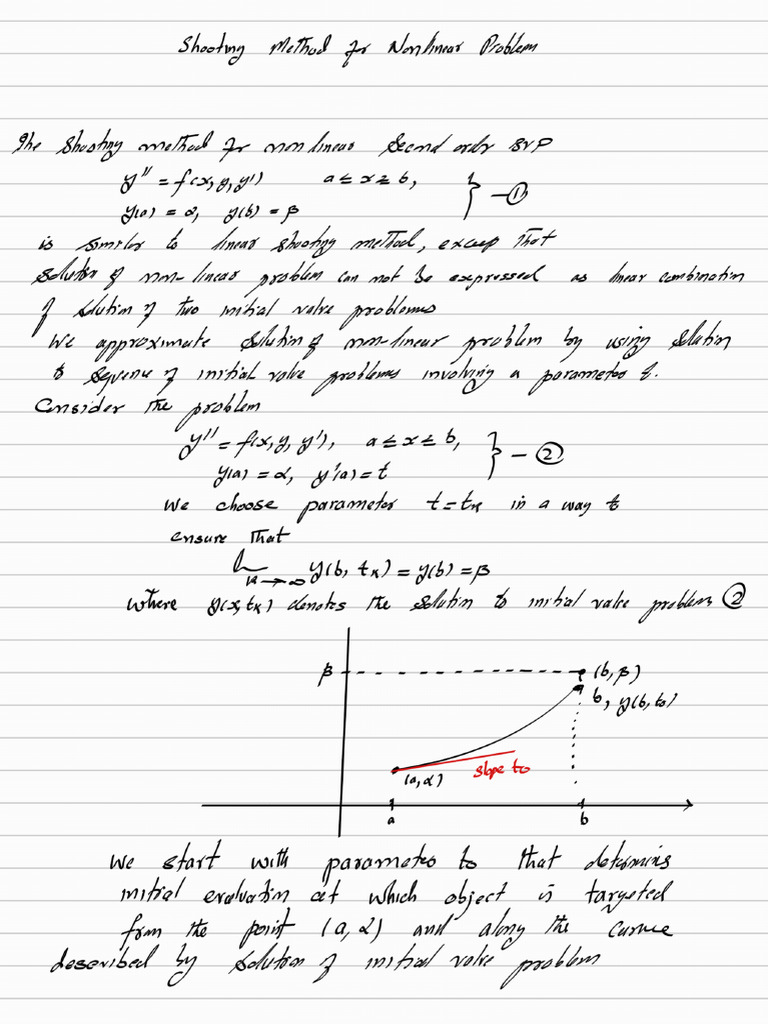 Shooting Method for Nonlinear Problem
The shooting method for non linear second order BVP
y'' = f(x, y, y')   a ≤ x ≥ b,
y(a) = α, y(b) = β   } - ①
is similar to linear shooting method, except that
solution of non-linear problem can not be expressed as linear combination
of solution of two initial value problems
We approximate solution of non-linear problem by using solution
to sequence of initial value problems involving a parameter t.
Consider the problem
y'' = f(x, y, y'), a ≤ x ≤ b,
y(a) = α, y'(a) = t   } - ②
We choose parameter t = tₖ in a way to
ensure that
lim k→∞ y(b, tₖ) = y(b) = β
where y(x, tₖ) denotes the solution to initial value problem ②
β
(b, β)
b, y(b, t₀)
(a, α)
slope t₀
a
b
We start with parameter t₀ that determins
initial evaluation at which object is targeted
from the point (a, α) and along the curve
described by solution of initial value problem